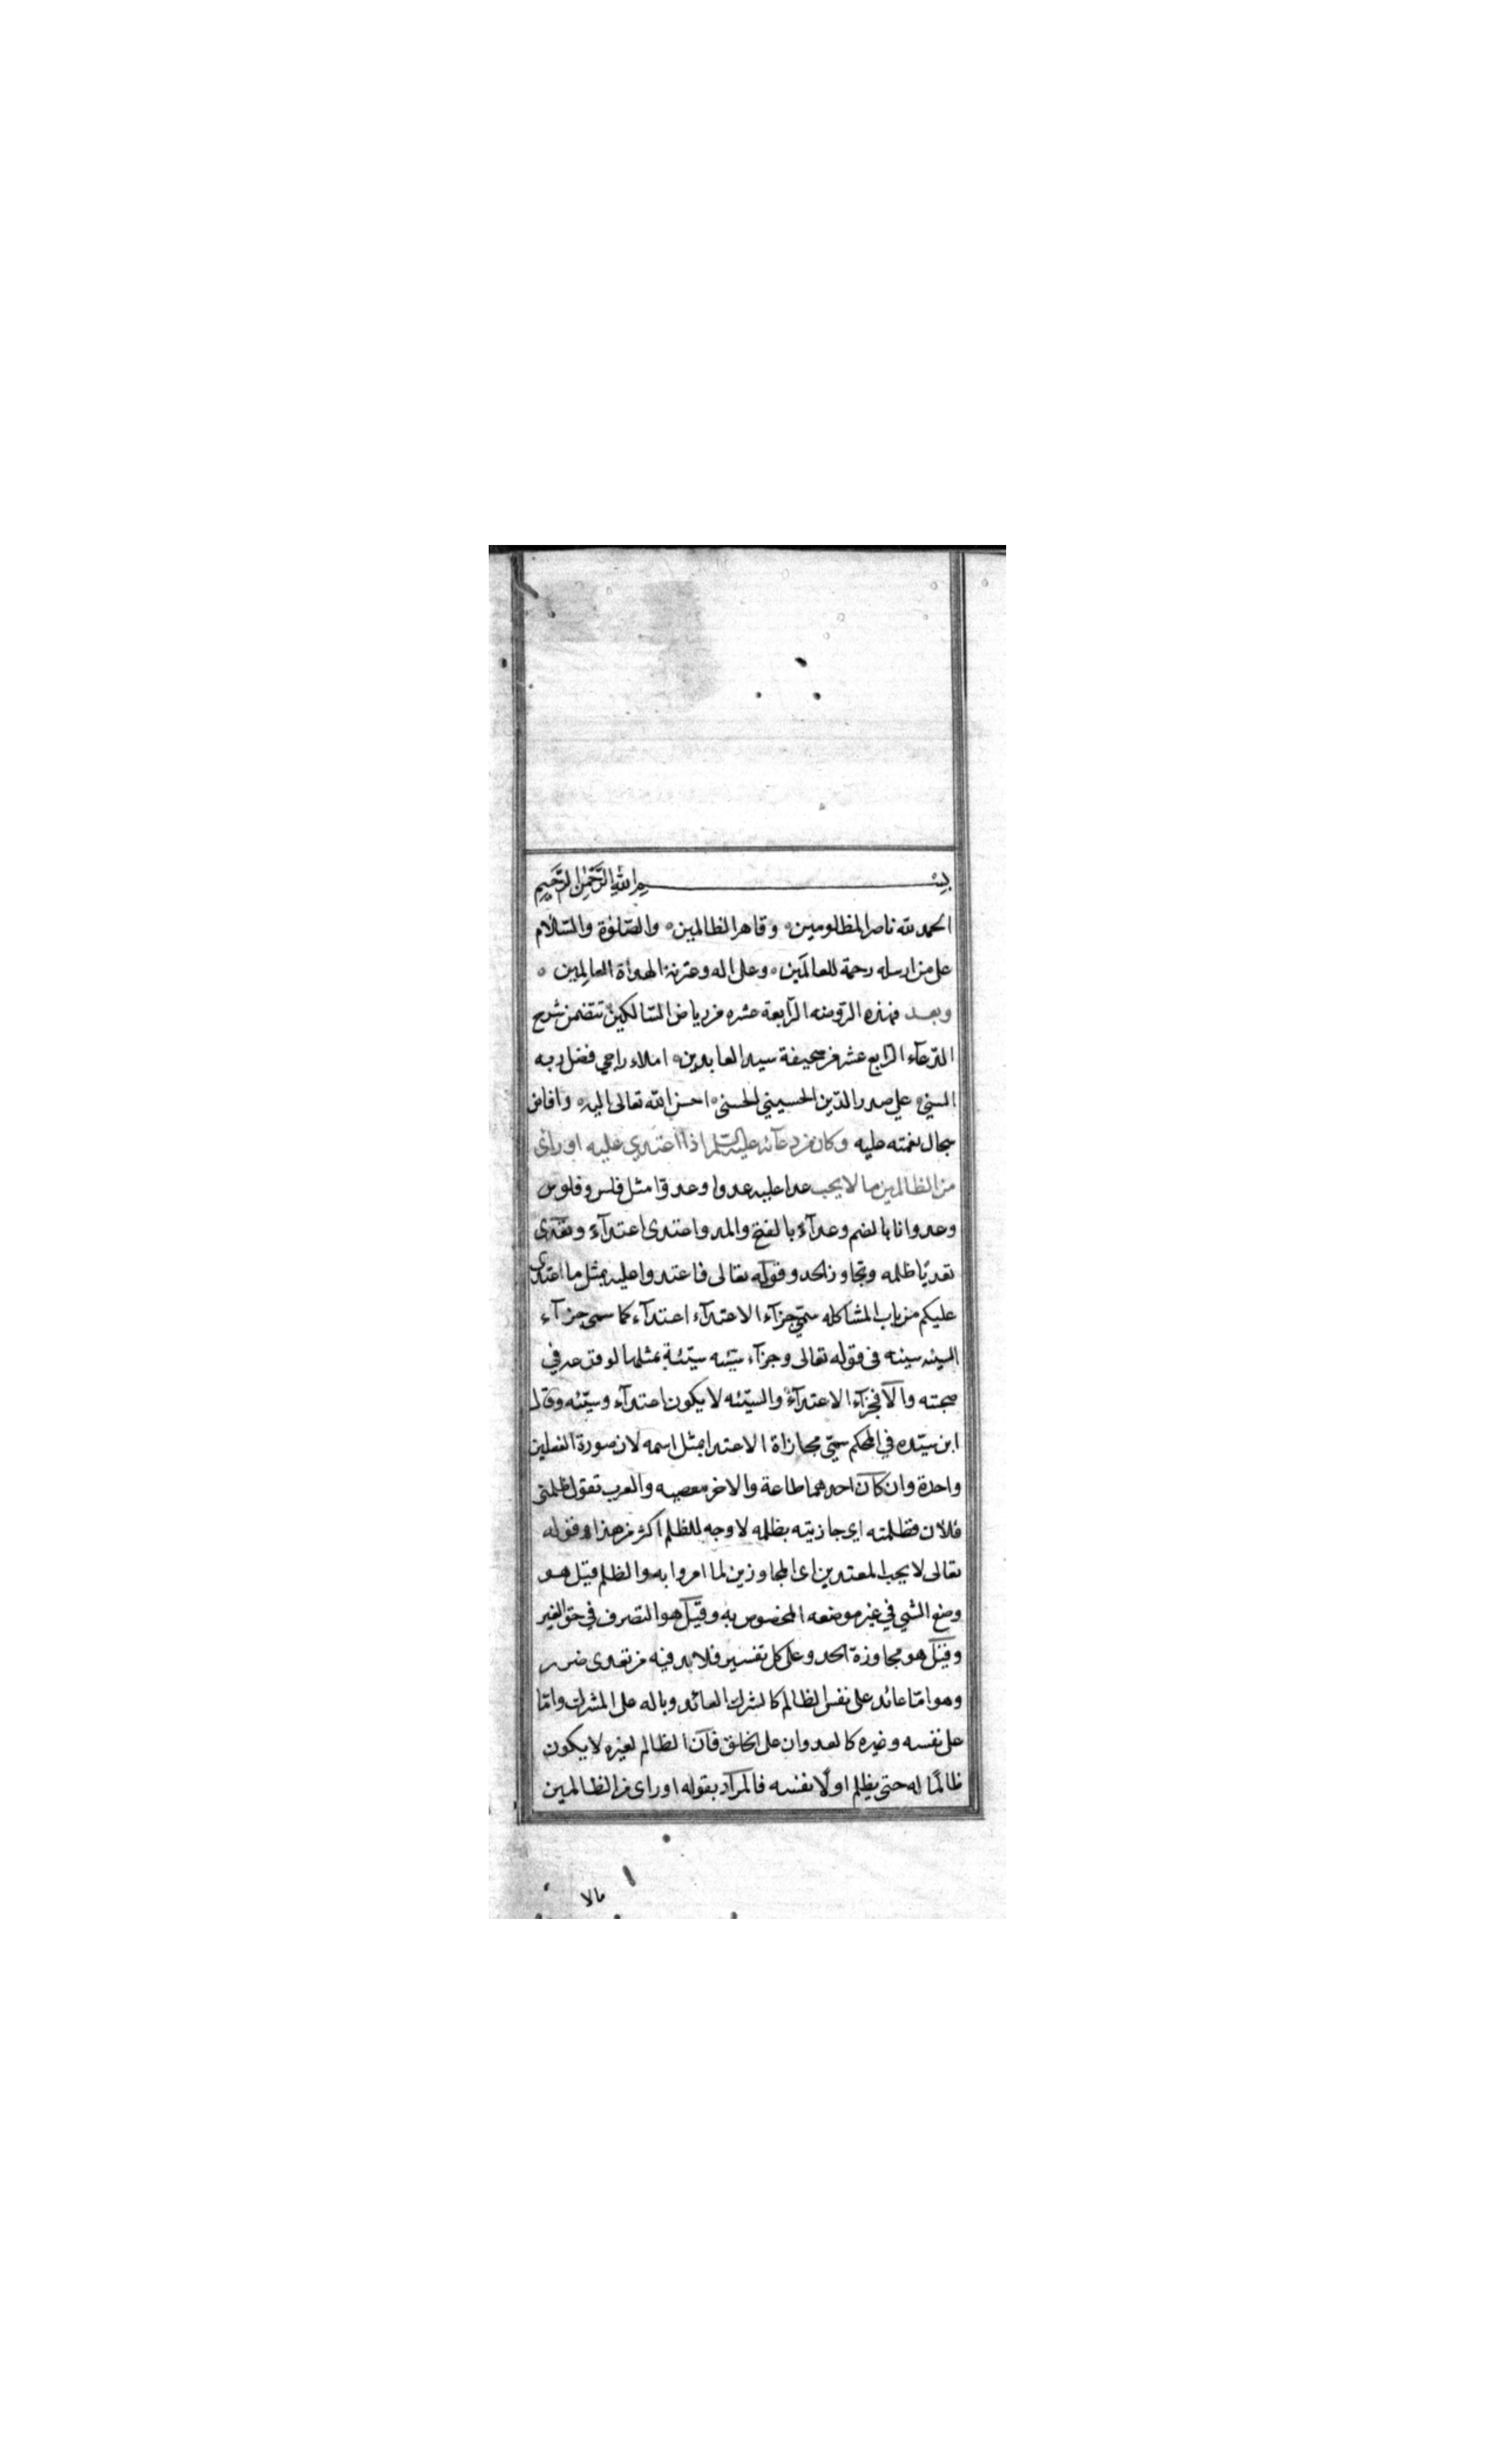 بسم الله الرحمن الرحيم
الحمد لله ناصر المظلومين وقاهر الظالمين والصلوة والسلام
على من ارسله رحمة للعالمين وعلى اله وعترته الهداة العالمين
وبعد فهذه الروضه الرابعة عشره من رياض السالكين تتضمن شرح
الدعآء الرابع عشر من صحيفة سيد العابدين املاء راجي فضل ربه
السني علي صدر الدين الحسيني الحسنى احسن الله تعالى اليه وافاض
سجال نعمته عليه وكان من دعآئه عليه السلم اذا اعتدي عليه او راى
من الظالمين ما لا يحب عدا عليه عدوا وعدوّا مثل فلس وفلوس
وعدوانا بالضم وعدآء بالفتح والمد واعتدى اعتدآء وتعدى
تعديًا ظلمه وتجاوز الحد وقوله تعالى فاعتدوا عليه بمثل ما اعتدى
عليكم من باب المشاكله سمّي جزآء الاعتدآء اعتدآء كما سمى جزآء
السيئه سيئه فى قوله تعالى وجزآء سيّئه سيّئة بمثلها لوقوعه في
صحبته والّا فجزآء الاعتدآء والسيّئه لا يكون اعتدآء وسيّئه وقال
ابن سيّده في المحكم سمّي مجازاة الاعتدا بمثل اسمه لان صورة الفعلين
واحدة وان كان احدهما طاعة والاخر معصيه والعرب تقول ظلمنى
فلان فظلمته اى جازيته بظلمه لا وجه للظلم اكثر من هذا وقوله
تعالى لا يحب المعتدين اى المجاوزين لما امروا به والظلم قيل هو
وضع الشي في غير موضعه المخصوص به وقيل هو التصرف في حق الغير
وقيل هو مجاوزة الحد وعلى كل تفسير فلا بد فيه من تعدى ضرر
وهو امّا عائد على نفس الظالم كالشرك العائد وباله على المشرك وامّا
على نفسه وغيره كالعدوان على الخلق فان الظالم لغيره لا يكون
ظالمًا له حتى يظلم اولًا نفسه فالمراد بقوله او راى من الظالمين
مالا